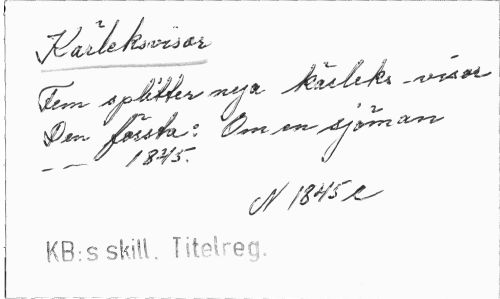 Kärleksvisor
Fem splitter nya kärleks-visor
Den första: Om en sjöman
— — 1845.
N 1845 e
KB:s skill. Titelreg.